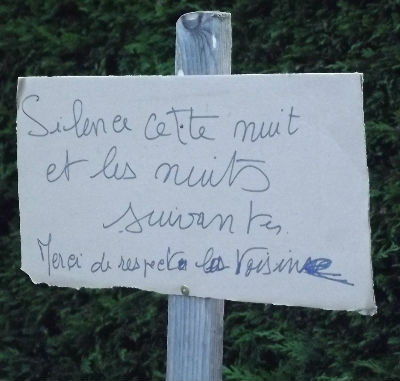 Silence cette nuit
et les nuits
suivantes.
Merci de respecter les voisins